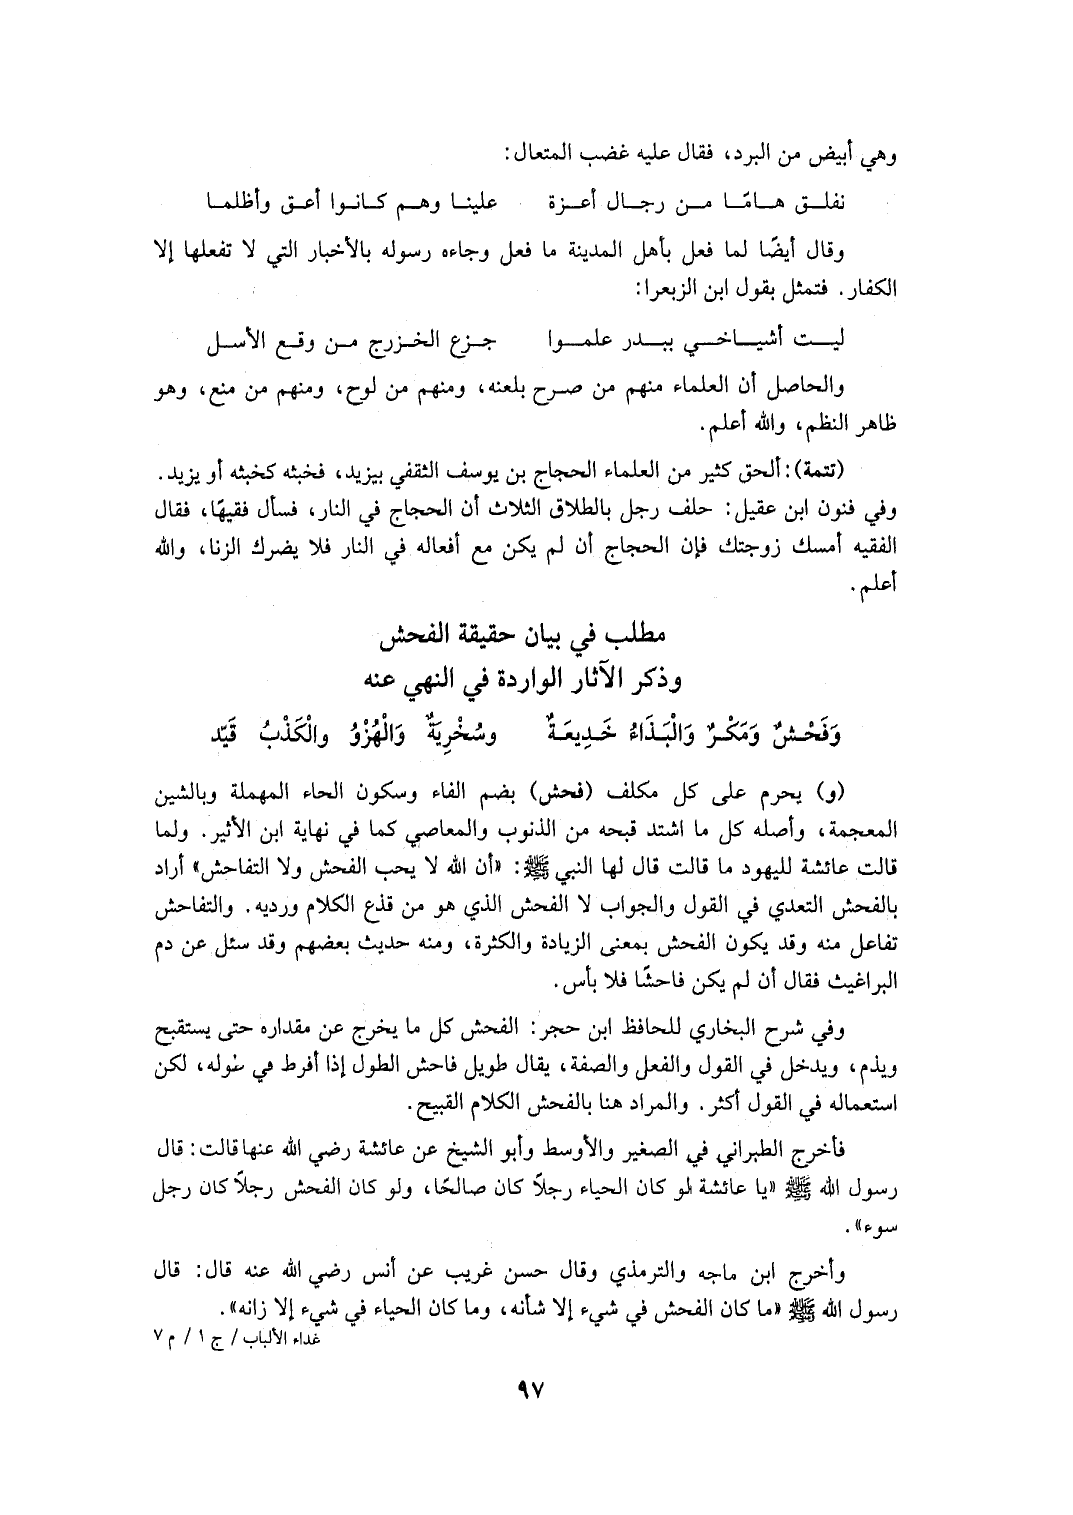 وهي أبيض من البرد، فقال عليه غضب المتعال:
نفلـق هـامًـا مـن رجـال أعـزة علينـا وهـم كـانـوا أعـق وأظلمـا
وقال أيضًا لما فعل بأهل المدينة ما فعل وجاءه رسوله بالأخبار التي لا تفعلها إلا
الكفار. فتمثل بقول ابن الزبعرا:
ليـت أشيـاخـي ببـدر علمـوا جـزع الخـزرج مـن وقـع الأسـل
والحاصل أن العلماء منهم من صرح بلعنه، ومنهم من لوح، ومنهم من منع، وهو
ظاهر النظم، والله أعلم.
(تتمة): ألحق كثير من العلماء الحجاج بن يوسف الثقفي بيزيد، فخبثه كخبثه أو يزيد.
وفي فنون ابن عقيل: حلف رجل بالطلاق الثلاث أن الحجاج في النار، فسأل فقيهًا، فقال
الفقيه أمسك زوجتك فإن الحجاج أن لم يكن مع أفعاله في النار فلا يضرك الزنا، والله
أعلم.
مطلب في بيان حقيقة الفحش
وذكر الآثار الواردة في النهي عنه
وَفَحْـشٌ وَمَكْـرٌ وَالْبَـذَاءُ خَـدِيعَـةٌ وسُخْرِيَةٌ وَالْهُزْوُ والْكَذْبُ قَيِّد
(و) يحرم على كل مكلف (فحش) بضم الفاء وسكون الحاء المهملة وبالشين
المعجمة، وأصله كل ما اشتد قبحه من الذنوب والمعاصي كما في نهاية ابن الأثير. ولما
قالت عائشة لليهود ما قالت قال لها النبي ﷺ: «أن الله لا يحب الفحش ولا التفاحش» أراد
بالفحش التعدي في القول والجواب لا الفحش الذي هو من قذع الكلام ورديه. والتفاحش
تفاعل منه وقد يكون الفحش بمعنى الزيادة والكثرة، ومنه حديث بعضهم وقد سئل عن دم
البراغيث فقال أن لم يكن فاحشًا فلا بأس.
وفي شرح البخاري للحافظ ابن حجر: الفحش كل ما يخرج عن مقداره حتى يستقبح
ويذم، ويدخل في القول والفعل والصفة، يقال طويل فاحش الطول إذا أفرط في طوله، لكن
استعماله في القول أكثر. والمراد هنا بالفحش الكلام القبيح.
فأخرج الطبراني في الصغير والأوسط وأبو الشيخ عن عائشة رضي الله عنها قالت: قال
رسول الله ﷺ «يا عائشة لو كان الحياء رجلاً كان صالحًا، ولو كان الفحش رجلاً كان رجل
سوء».
وأخرج ابن ماجه والترمذي وقال حسن غريب عن أنس رضي الله عنه قال: قال
رسول الله ﷺ «ما كان الفحش في شيء إلا شأنه، وما كان الحياء في شيء إلا زانه».
غداء الألباب/ ج ١/ م ٧
٩٧